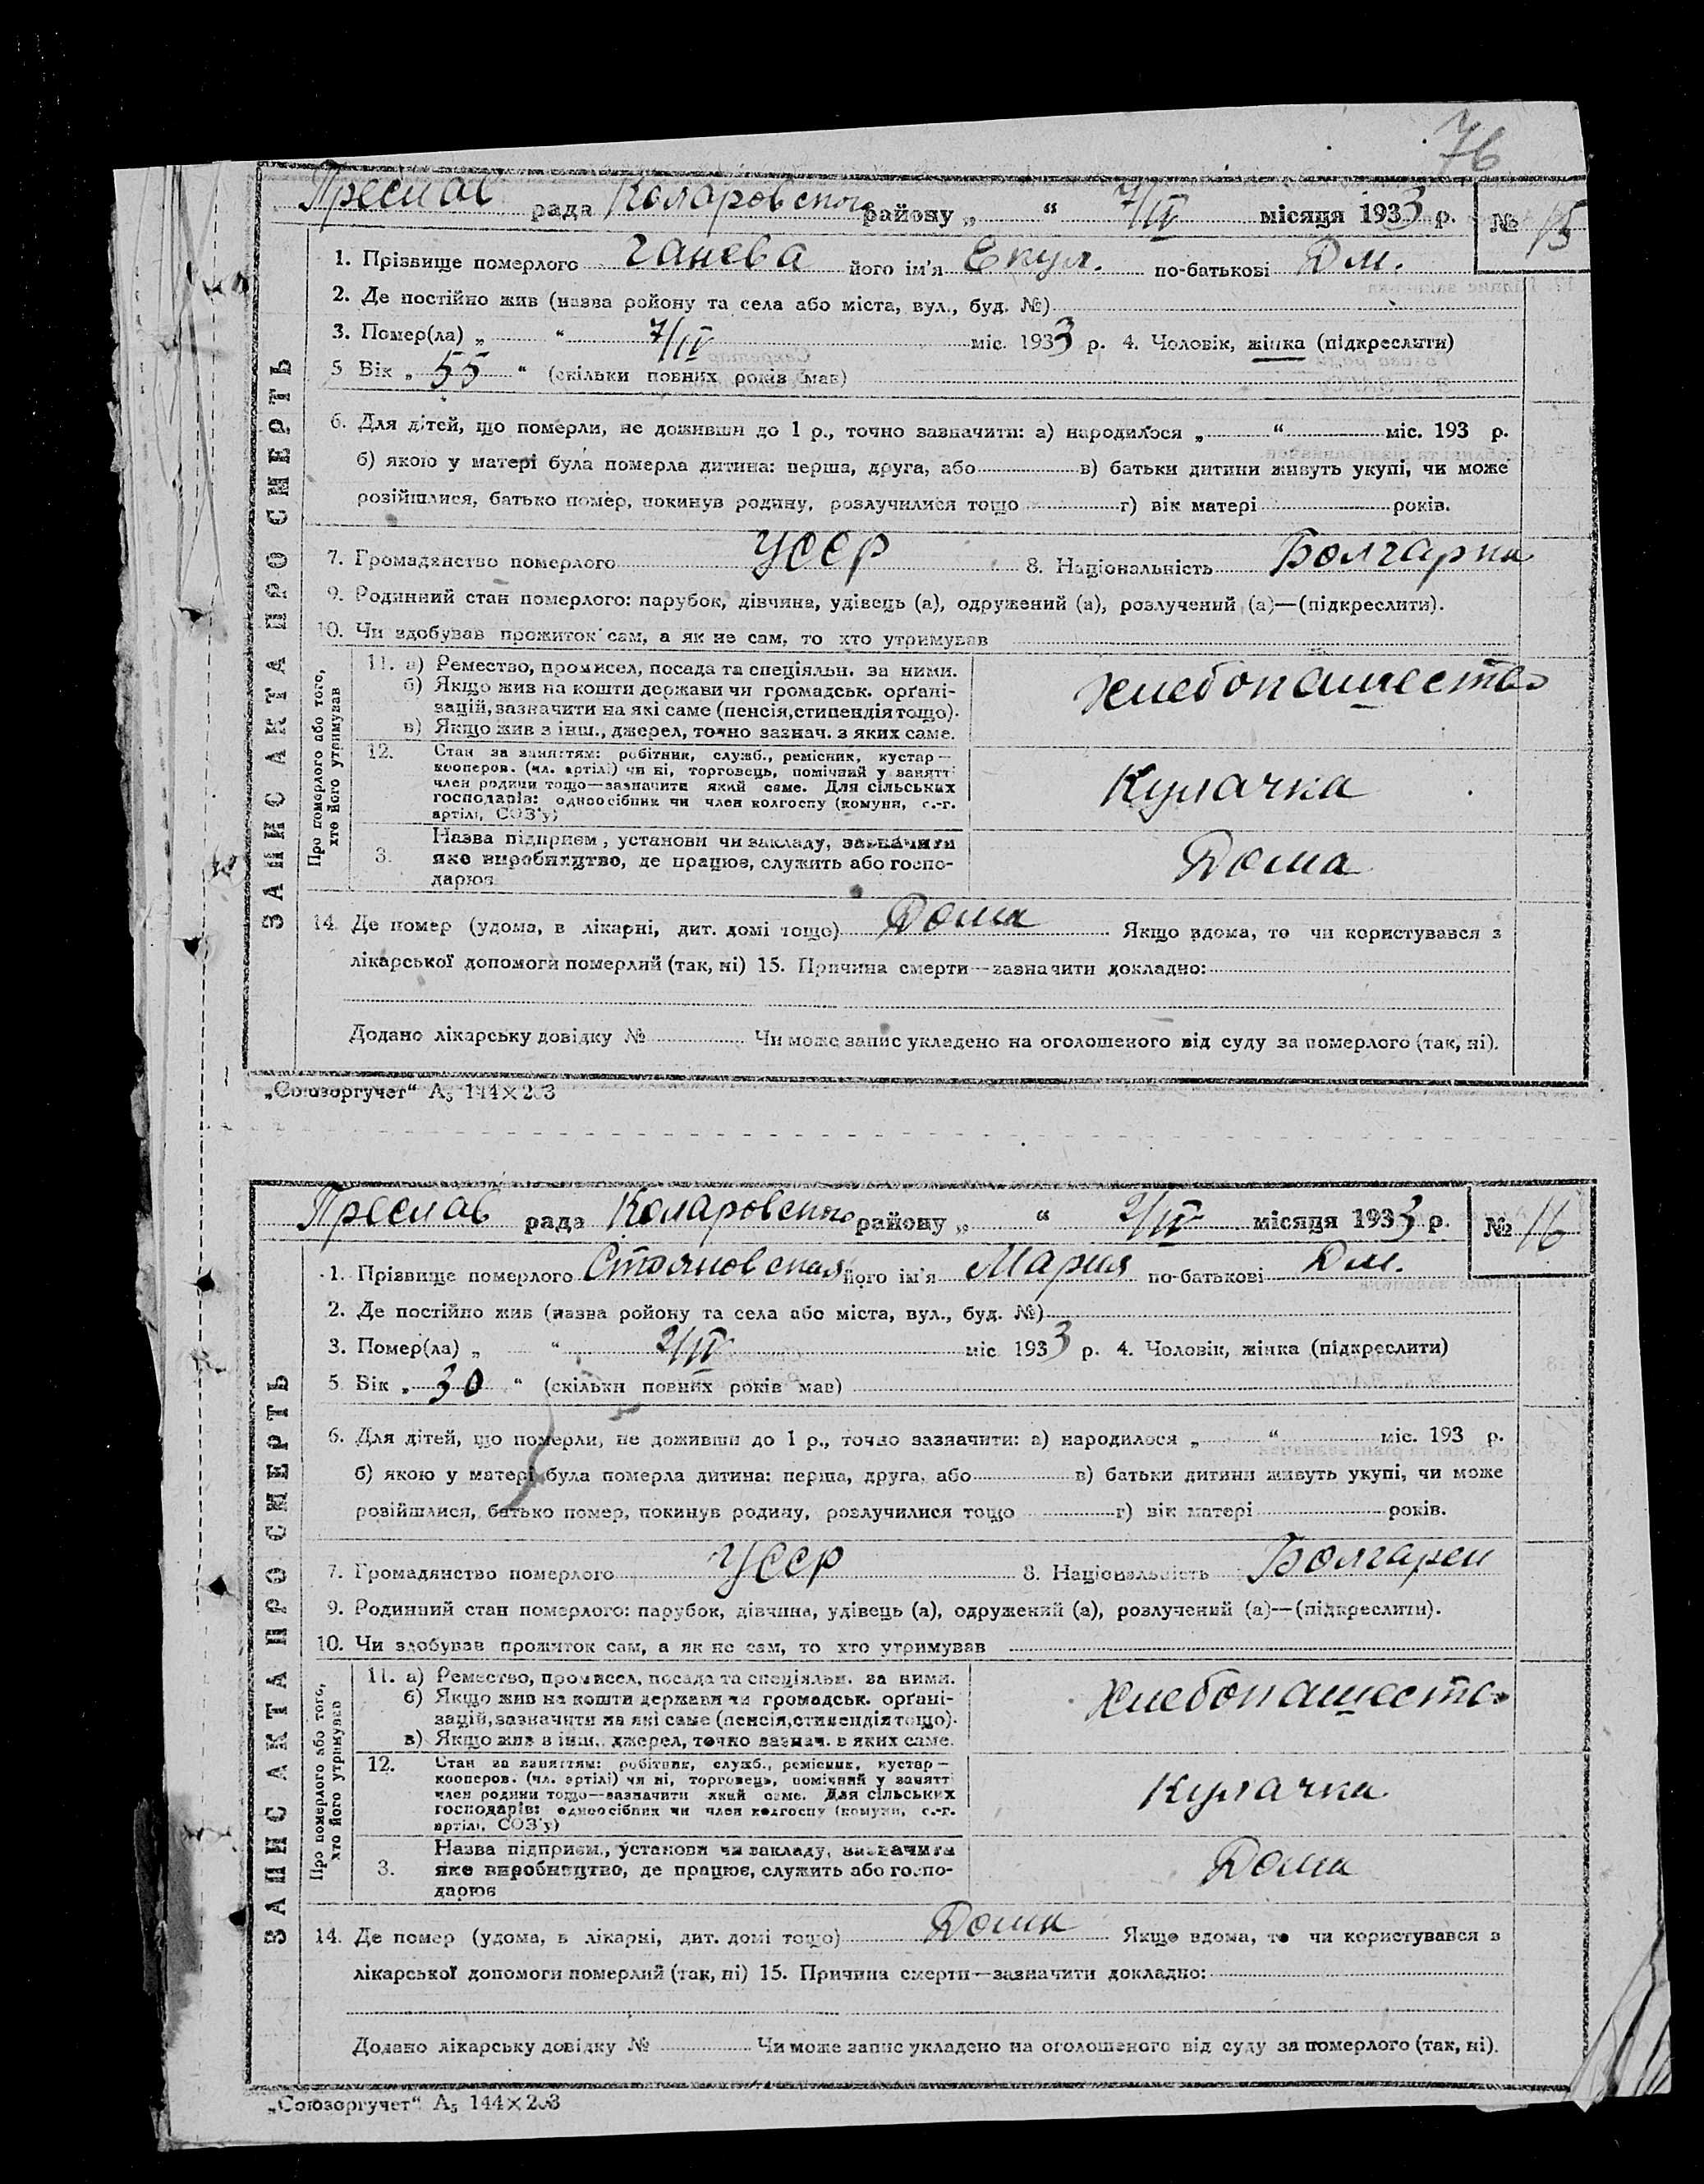 76
Преслав рада Коларовского району „ “ 7/IV місяця 1933 р. № 15
1. Прізвище померлого Ганева його ім'я Екул. по-батькові Дм.
2. Де постійно жив (назваройону та села або міста, вул., буд. №)
3. Помер(ла) „ “ 7/IV міс. 1933 р. 4. Чоловік, жінка (підкреслити)
5 Вік „ 55 “ (скільки повних років мав)
6. Для дітей, що померли, не доживши до 1 р., точно зазначити: а) народилося „ “ міс. 193 р.
б) якою у матері була померла дитина: перша, друга, або в) батьки дитини живуть укупі, чи може
розійшлися, батько помер, покинув родину, розлучилися тощо г) вік матері років.
7. Громадянство померлого УССР 8. Національність Болгарка
9. Родинний стан померлого: парубок, дівчина, удівець (а), одружений (а), розлучений (а)—(підкреслити).
10. Чи здобував прожиток сам, а як не сам, то хто утримував
ЗАПИС АКТА ПРО СМЕРТЬ
Про померлого або того,
хто його утримував
11. а) Ремество, промисел, посада та спеціяльн. за ними.
б) Якщо жив на кошти держави чи громадськ. орґані-
зацій, зазначити на які саме (пенсія, стипендія тощо).
в) Якщо жив з інш., джерел, точно зазнач. з яких саме.
хлебопашество
12. Стан за заняттям: робітник, служб., ремісник, кустар—
кооперов. (чл. артілі) чи ні, торговець, помічний у занятті
член родини тощо—зазначити який саме. Для сільських
господарів: одноосібник чи член колгоспу (комуни, с.-г.
артілі, СОЗ'у)
Кулачка
3. Назва підприєм., установи чи закладу, зазначити
яке виробництво, де працює, служить або госпо-
дарює
Дома
14. Де помер (удома, в лікарні, дит. домі тощо) Дома Якщо вдома, то чи користувався з
лікарської допомоги померлий (так, ні) 15. Причина смерти—зазначити докладно:
Додано лікарську довідку № Чи може запис укладено на оголошеного від суду за померлого (так, ні).
„Союзоргучет“ А5 144×203
Преслав рада Коларовского району „ “ 2/IV місяця 1933 р. № 16
1. Прізвище померлого Стояновская його ім'я Мария по-батькові Дм.
2. Де постійно жив (назва ройону та села або міста, вул., буд. №)
3. Помер(ла) „ “ 2/IV міс 1933 р. 4. Чоловік, жінка (підкреслити)
5 Вік „ 30 “ (скільки повних років мав)
6. Для дітей, що померли, не доживши до 1 р., точно зазначити: а) народилося „ “ міс. 193 р.
б) якою у матері була померла дитина: перша, друга, або в) батьки дитини живуть укупі, чи може
розійшлися, батько помер, покинув родину, розлучилися тощо г) вік матері років.
7. Громадянство померлого УССР 8. Національність Болгарен
9. Родинний стан померлого: парубок, дівчина, удівець (а), одружений (а), розлучений (а)—(підкреслити).
10. Чи здобував прожиток сам, а як не сам, то хто утримував
ЗАПИС АКТА ПРО СМЕРТЬ
Про померлого або того,
хто його утримував
11. а) Ремество, промисел, посада та спеціяльн. за ними.
б) Якщо жив на кошти держави чи громадськ. орґані-
зацій, зазначити на які саме (пенсія, стипендія тощо).
в) Якщо жив з інш., джерел, точно зазнач. з яких саме.
хлебопашество
12. Стан за заняттям: робітник, служб., ремісник, кустар—
кооперов. (чл. артілі) чи ні, торговець, помічний у занятті
член родини тощо—зазначити який саме. Для сільських
господарів: одноосібник чи член колгоспу (комуни, с.-г.
артілі, СОЗ'у)
Кулачка
3. Назва підприєм., установи чи закладу, зазначити
яке виробництво, де працює, служить або госпо-
дарює
Дома
14. Де помер (удома, в лікарні, дит. домі тощо) Дома Якщо вдома, то чи користувався з
лікарської допомоги померлий (так, ні) 15. Причина смерти—зазначити докладно:
Додано лікарську довідку № Чи може запис укладено на оголошеного від суду за померлого (так, ні).
„Союзоргучет“ А5 144×203